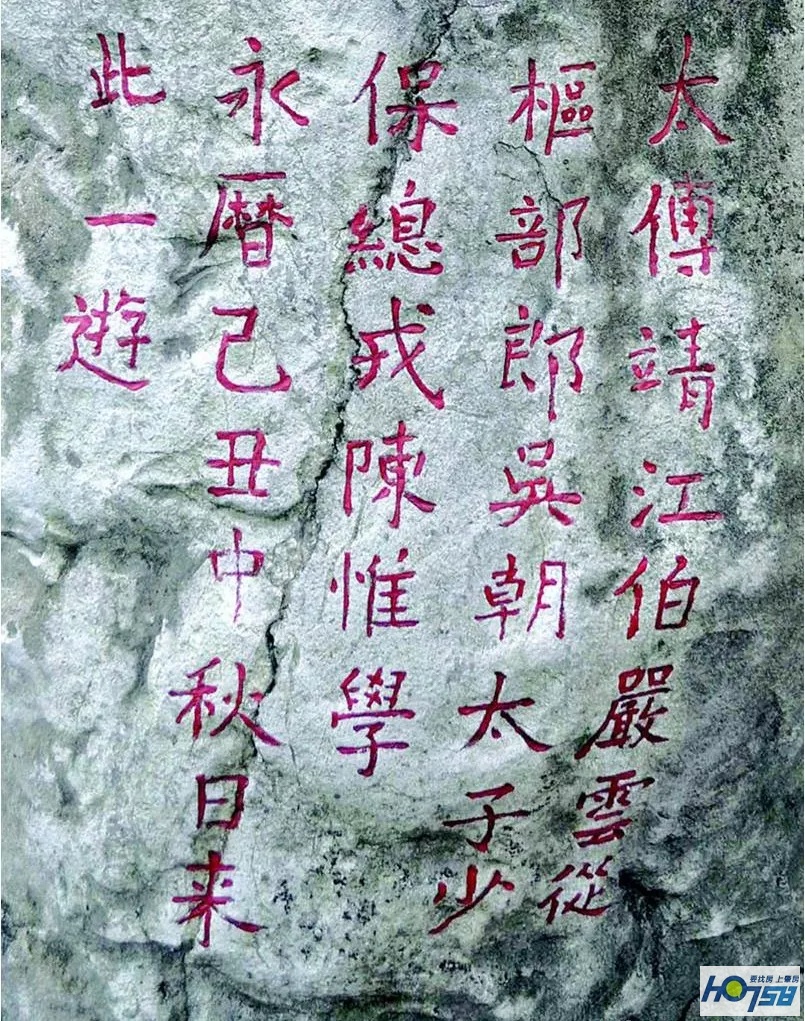 太傅靖江伯嚴雲從
樞部郎吳朝太子少
保總戎陳惟學
永曆己丑中秋日来
此一遊
要找房 上肇房
HO758